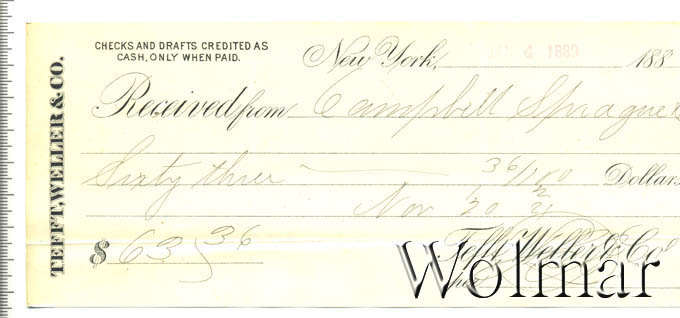 TEFFT, WELLER & CO.
CHECKS AND DRAFTS CREDITED AS
CASH, ONLY WHEN PAID.
New York, JAN 4 1880 188
Received from Campbell Sprague &
Sixty three 36/100 Dollars
Nov 20
$ 63 36
Tefft Weller & Co
Wolmar